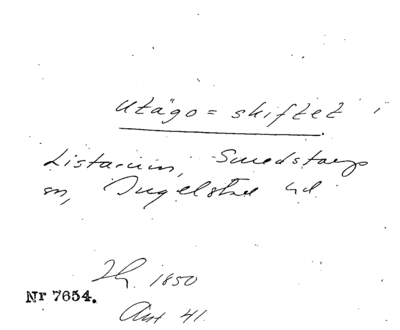 Utägo= skiftet i
Listarum, Smedstorps
sn, Ingelstad hd
1850
Nr 7654.
41